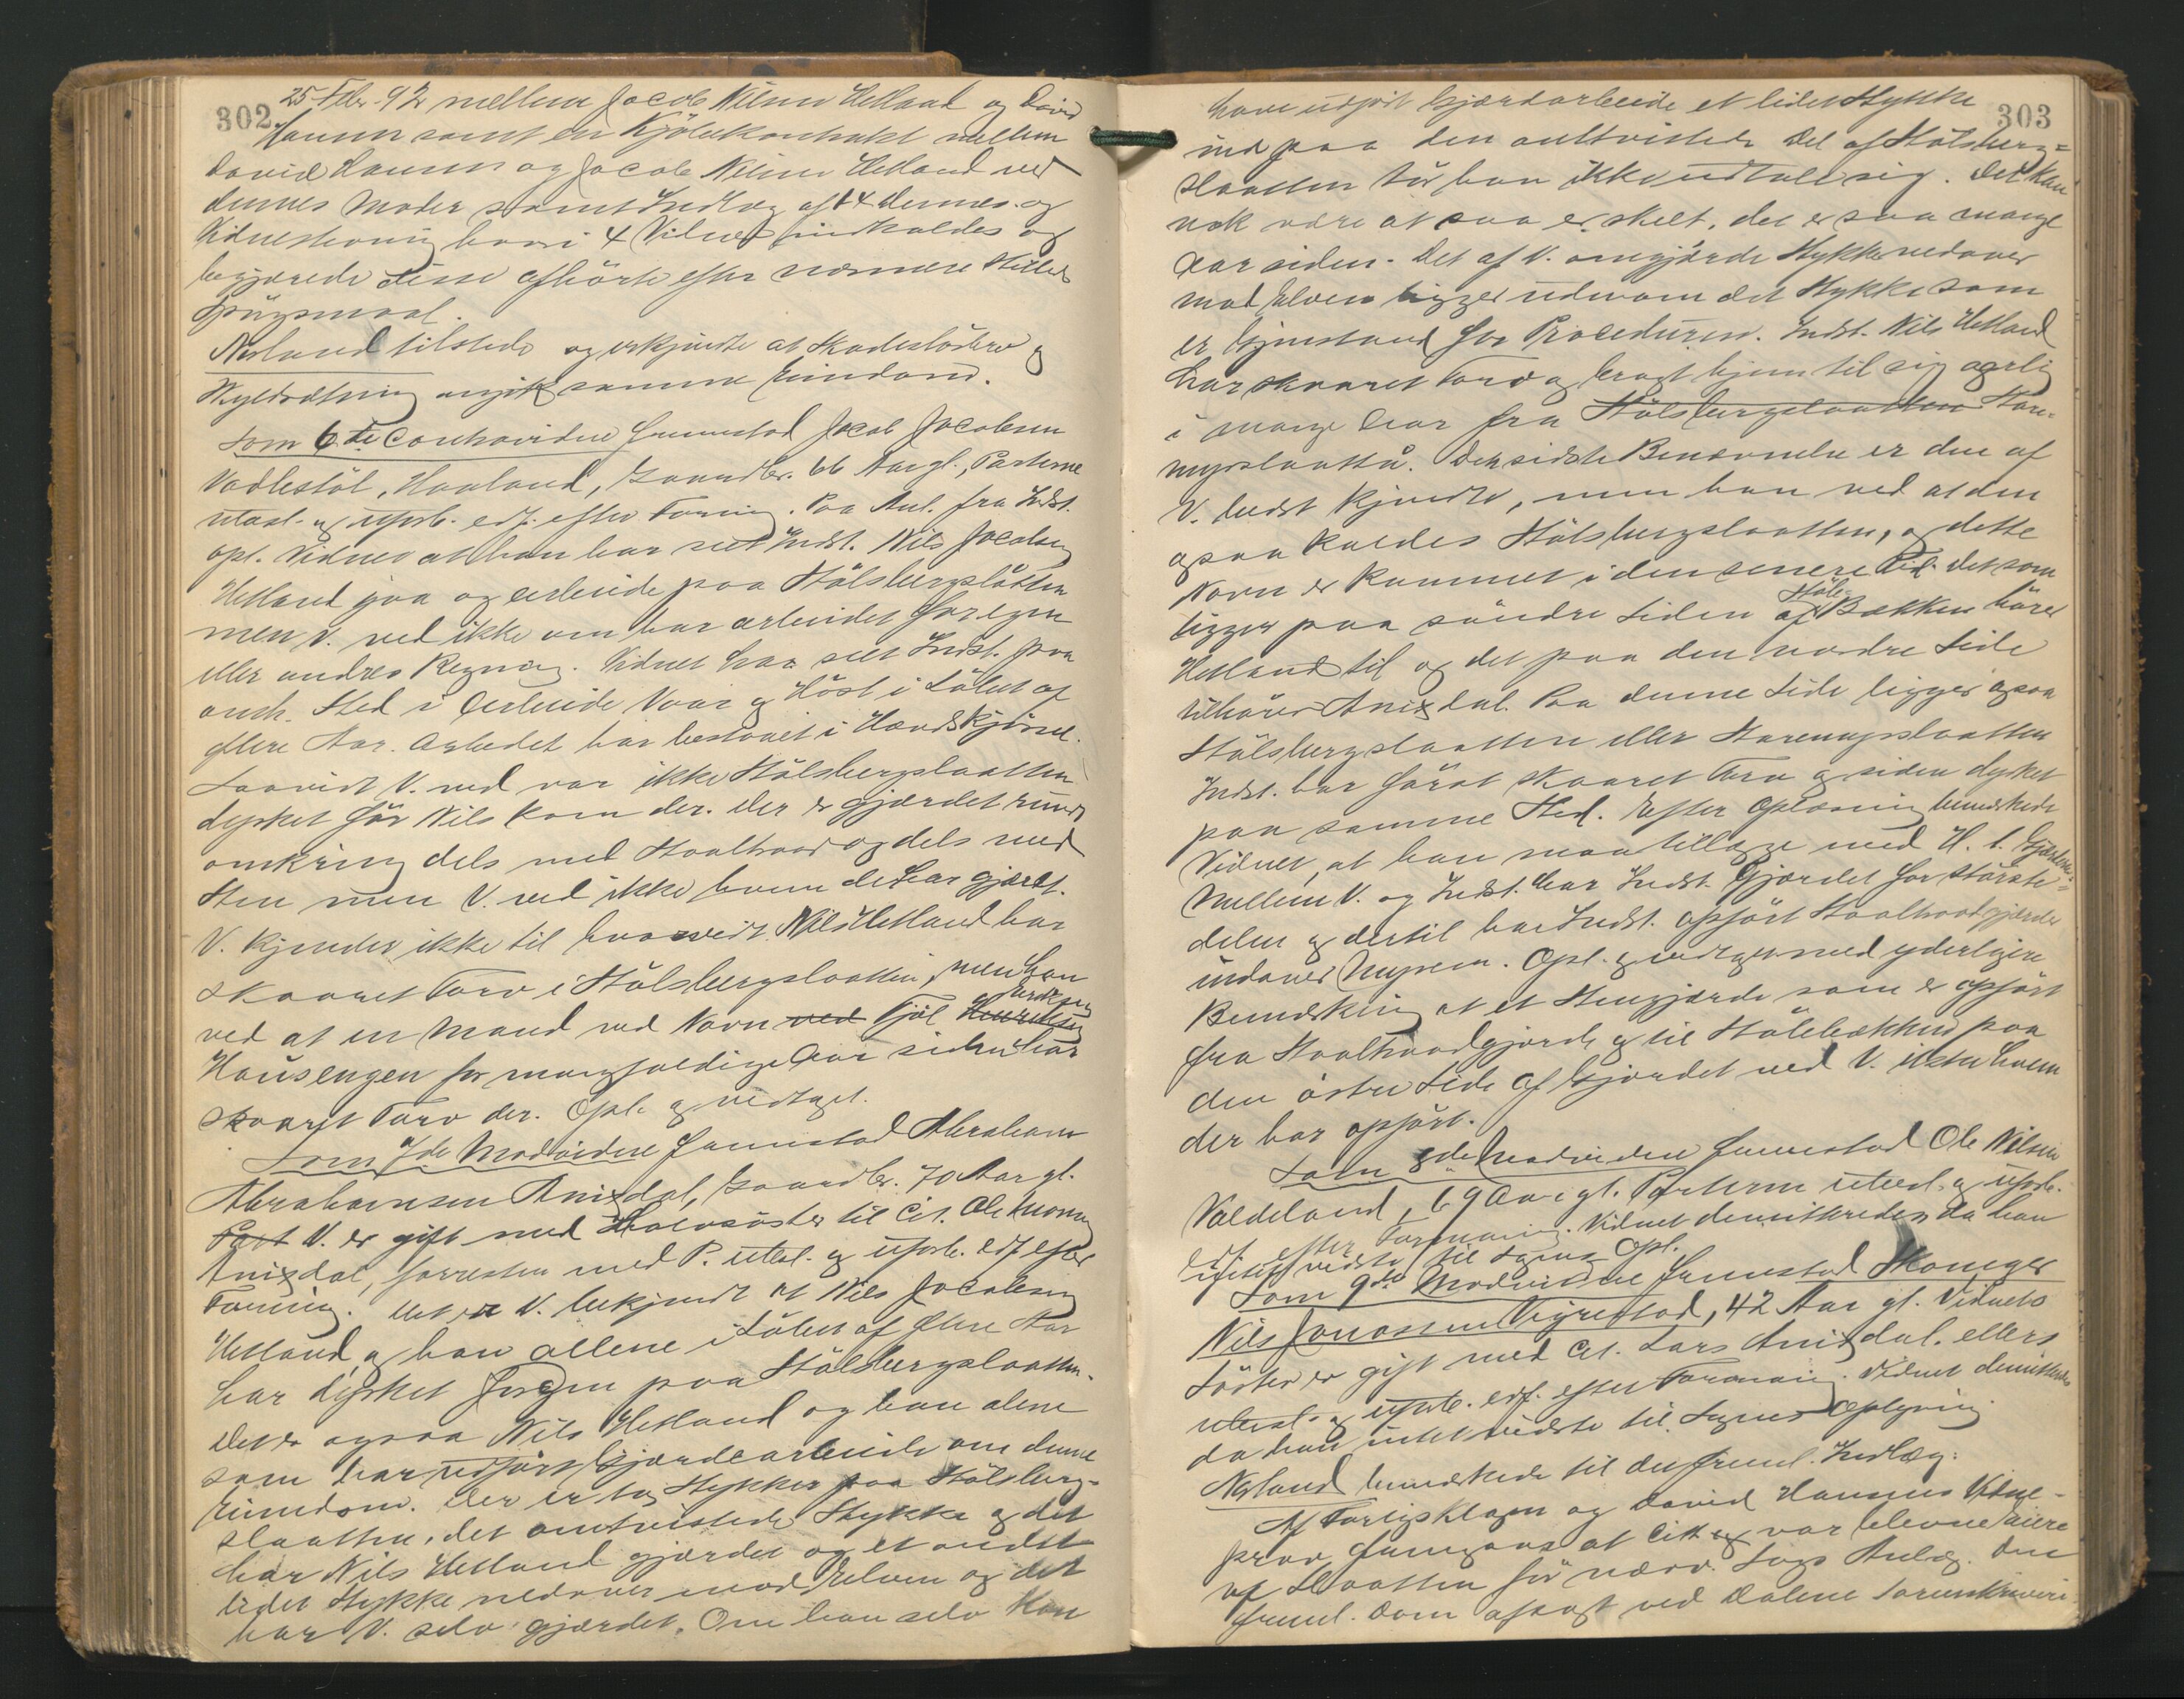 302.
25 Febr. 92 mellem Jacob Nilsen Hetland og David
Hannes samt en Kjöbekontrakt mellem
David Hannes og Jacob Nilsen Hetland ved
dennes Moder samt Indlæg af 14 dennes og
Vidnestevning hvori 4 Vidner indkaldes og
begjærede disse afhörte efter nærmere stillede
Spörgsmaal.
Nyland tilstede og erkjendte at Skadeslösbrev og
Skyldsætning angik samme Eiendom.
Som 6te Contravidne fremstod Jacob Jacobsen
Vadlestöl, Haaland, Gaardbr. 66 Aar gl., Parterne
utasl. og uforb. edf. efter Forming. Paa Anl. fra Indst.
opl. Vidnet at han har seet Indst. Nils Jacobsen
Hetland gaa og arbeide paa Stölsbergslåtten
men V. ved ikke om har arbeidet for egen
eller andres Regning. Vidnet har seet Indst. paa
omh. Sted i Arbeide Vaar og Höst i Löbet af
flere Aar. Arbeidet har bestaaet i Handkjörsel.
Saavidt V. ved var ikke Stölsbergslaatten
dyrket för Nils kom der. Der er gjærdet rundt
omkring dels med Staaltraad og dels med
Sten men V. ved ikke hvem der har gjærdet.
V. kjender ikke til hvorvidt Nils Hetland har
skaaret Torv i Stölsbergslaatten, men han
ved at en Mand ved Navn ved Fjöl Henriksen Eriksen
Hausengen for mangfoldige Aar siden har
skaaret Torv der. Opl. og vedtaget.
Som 7de Modvidne fremstod Abraham
Abrahamsen Anixdal, Gaardbr. 70 Aar gl.
Part V. er gift med Halvsöster til Cit. Ole Mong
Anixdal, forresten med P. utasl. og uforb. edf. efter
Forming. Det er V. bekjendt at Nils Jacobsen
Hetland og han allene i Löbet af flere Aar
har dyrket Jorden paa Stölsbergslaatten.
Det er ogsaa Nils Hetland og han alene
som har udfört Gjærdearbeide om denne
Eiendom. Der er to Stykker paa Stölsberg-
slaatten, det omtvistede Stykke og det
har Nils Hetland gjærdet og et andet
lidet Stykke nedover mod Elven og det
har V. selv gjærdet. Om han selv kan
303
have udfört Gjærdarbeide et lidet Stykke
ind paa den omtvistede Del af Stölsberg-
slaatten tör han ikke udtale sig. Det kan
nok være at saa er skelt, det er saa mange
Aar siden. Det af V. omgjærde Stykke nedover
mod Elven ligger udenom det Stykke som
er Gjenstand for Proceduren. Indst. Nils Hetland
har skaaret Torv og bragt hjem til sig aarlig
i mange Aar fra Stölsbergslaatten Stare-
myrslaatta. Den sidste Benævnelse er den af
V. bedst kjendte, men han ved at den
ogsaa kaldes Stölsbergslaatten, og dette
Navn er kommet i den senere Tid. Det som
ligger paa söndre Siden af Stöle Bækken hörer
Hetland til og det paa den nordre Side
tilhörer Anixdal. Paa denne Side ligger ogsaa
Stölsbergslaatten eller Staremyrslaatten
Indst. har först skaaret Torv og siden dyrket
paa samme Sted. Efter Oplæsning bemærkede
Vidnet, at han maa tillægge med H. t. Gjærdene:
Mellem V. og Indst. har Indst. gjærdet for störste-
delen og dertil har Indst. opfört Staaltraadgjærde
indover Myren. Opl. og vedtaget med yderligere
Bemærkning at et Stengjærde som er opfört
fra Staaltraadgjærde og til Stölebækken paa
den östre Side af Gjærdet ved V. ikke hvem
der har opfört.
Som 8de Modvidne fremstod Ole Nilsen
Valdeland, 69 Aar gl. Parterne utasl. og uforb.
edf. efter Formaning. Vidnet demitteredes da han
intet vidste til Sagens Opl.
Som 9de Modvidne fremstod Skomager
Nils Jonassen Vigrestad, 42 Aar gl. Vidnets
Söster er gift med Cit. Lars Anixdal. ellers
utasl. og uforb. edf. efter Formaning. Vidnet demitteredes
da han intet vidste til Sagens Oplysning.
Nyland bemærkede til det freml. Indlæg:
Af Forligsklagen og David Hannes Vidne-
prov fremgaar at Citt. var blevne eiere
af Slaatten för nærv. Sags Anlæg. Den
freml. Dom afsagt ved Dalene Sorenskriveri